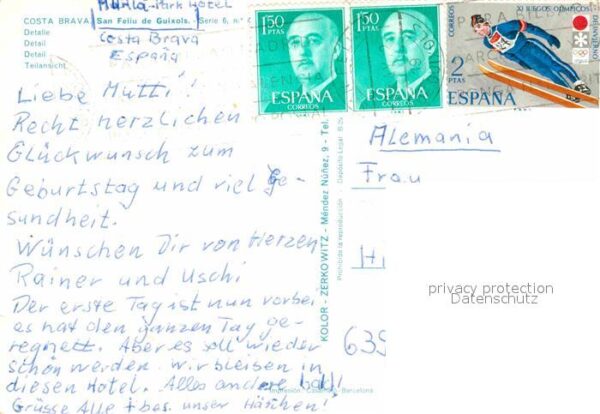 Murlá-Park Hotel
COSTA BRAVA
San Feliu de Guixols. - Serie 6, n.º
Detalle
Detail
Detail
Teilansicht
Costa Brava
España
Liebe Mutti!
Recht herzlichen
Glückwunsch zum
Geburtstag und viel Ge-
sundheit.
Wünschen Dir von Herzen
Rainer und Uschi
Der erste Tag ist nun vorbei
es hat den ganzen Tag ge-
regnet. Aber es soll wieder
schön werden. Wir bleiben in
diesen Hotel. Alles andere bald!
Grüsse Alle + bes. unser Häschen!
KOLOR - ZERKOWITZ - Méndez Núñez, 9 - Tel.
Prohibida la reproducción - Depósito Legal B.
Barcelona
1'50
PTAS
ESPAÑA
CORREOS
1'50
PTAS
ESPAÑA
CORREOS
CORREOS
XI JUEGOS OLIMPICOS
DE INVIERNO
2
PTAS
ESPAÑA
Alemania
Frau
H
635
privacy protection
Datenschutz